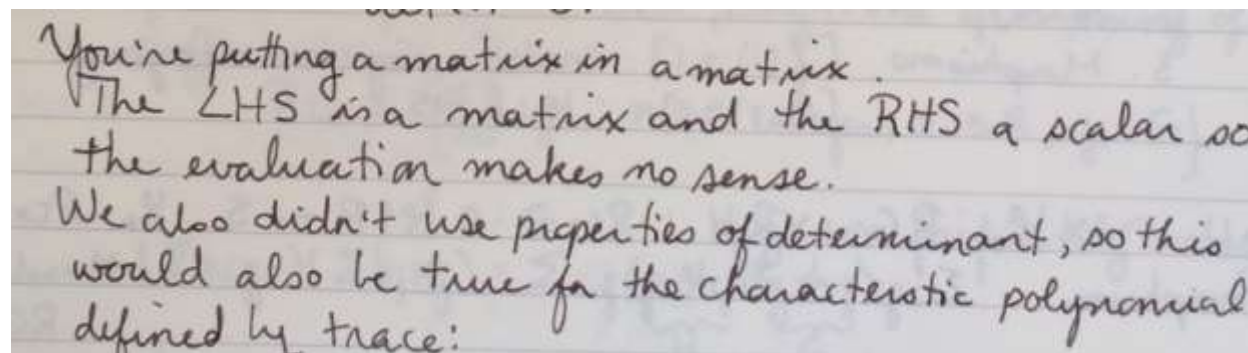 You're putting a matrix in a matrix.
The LHS is a matrix and the RHS a scalar so
the evaluation makes no sense.
We also didn't use properties of determinant, so this
would also be true for the characteristic polynomial
defined by trace: